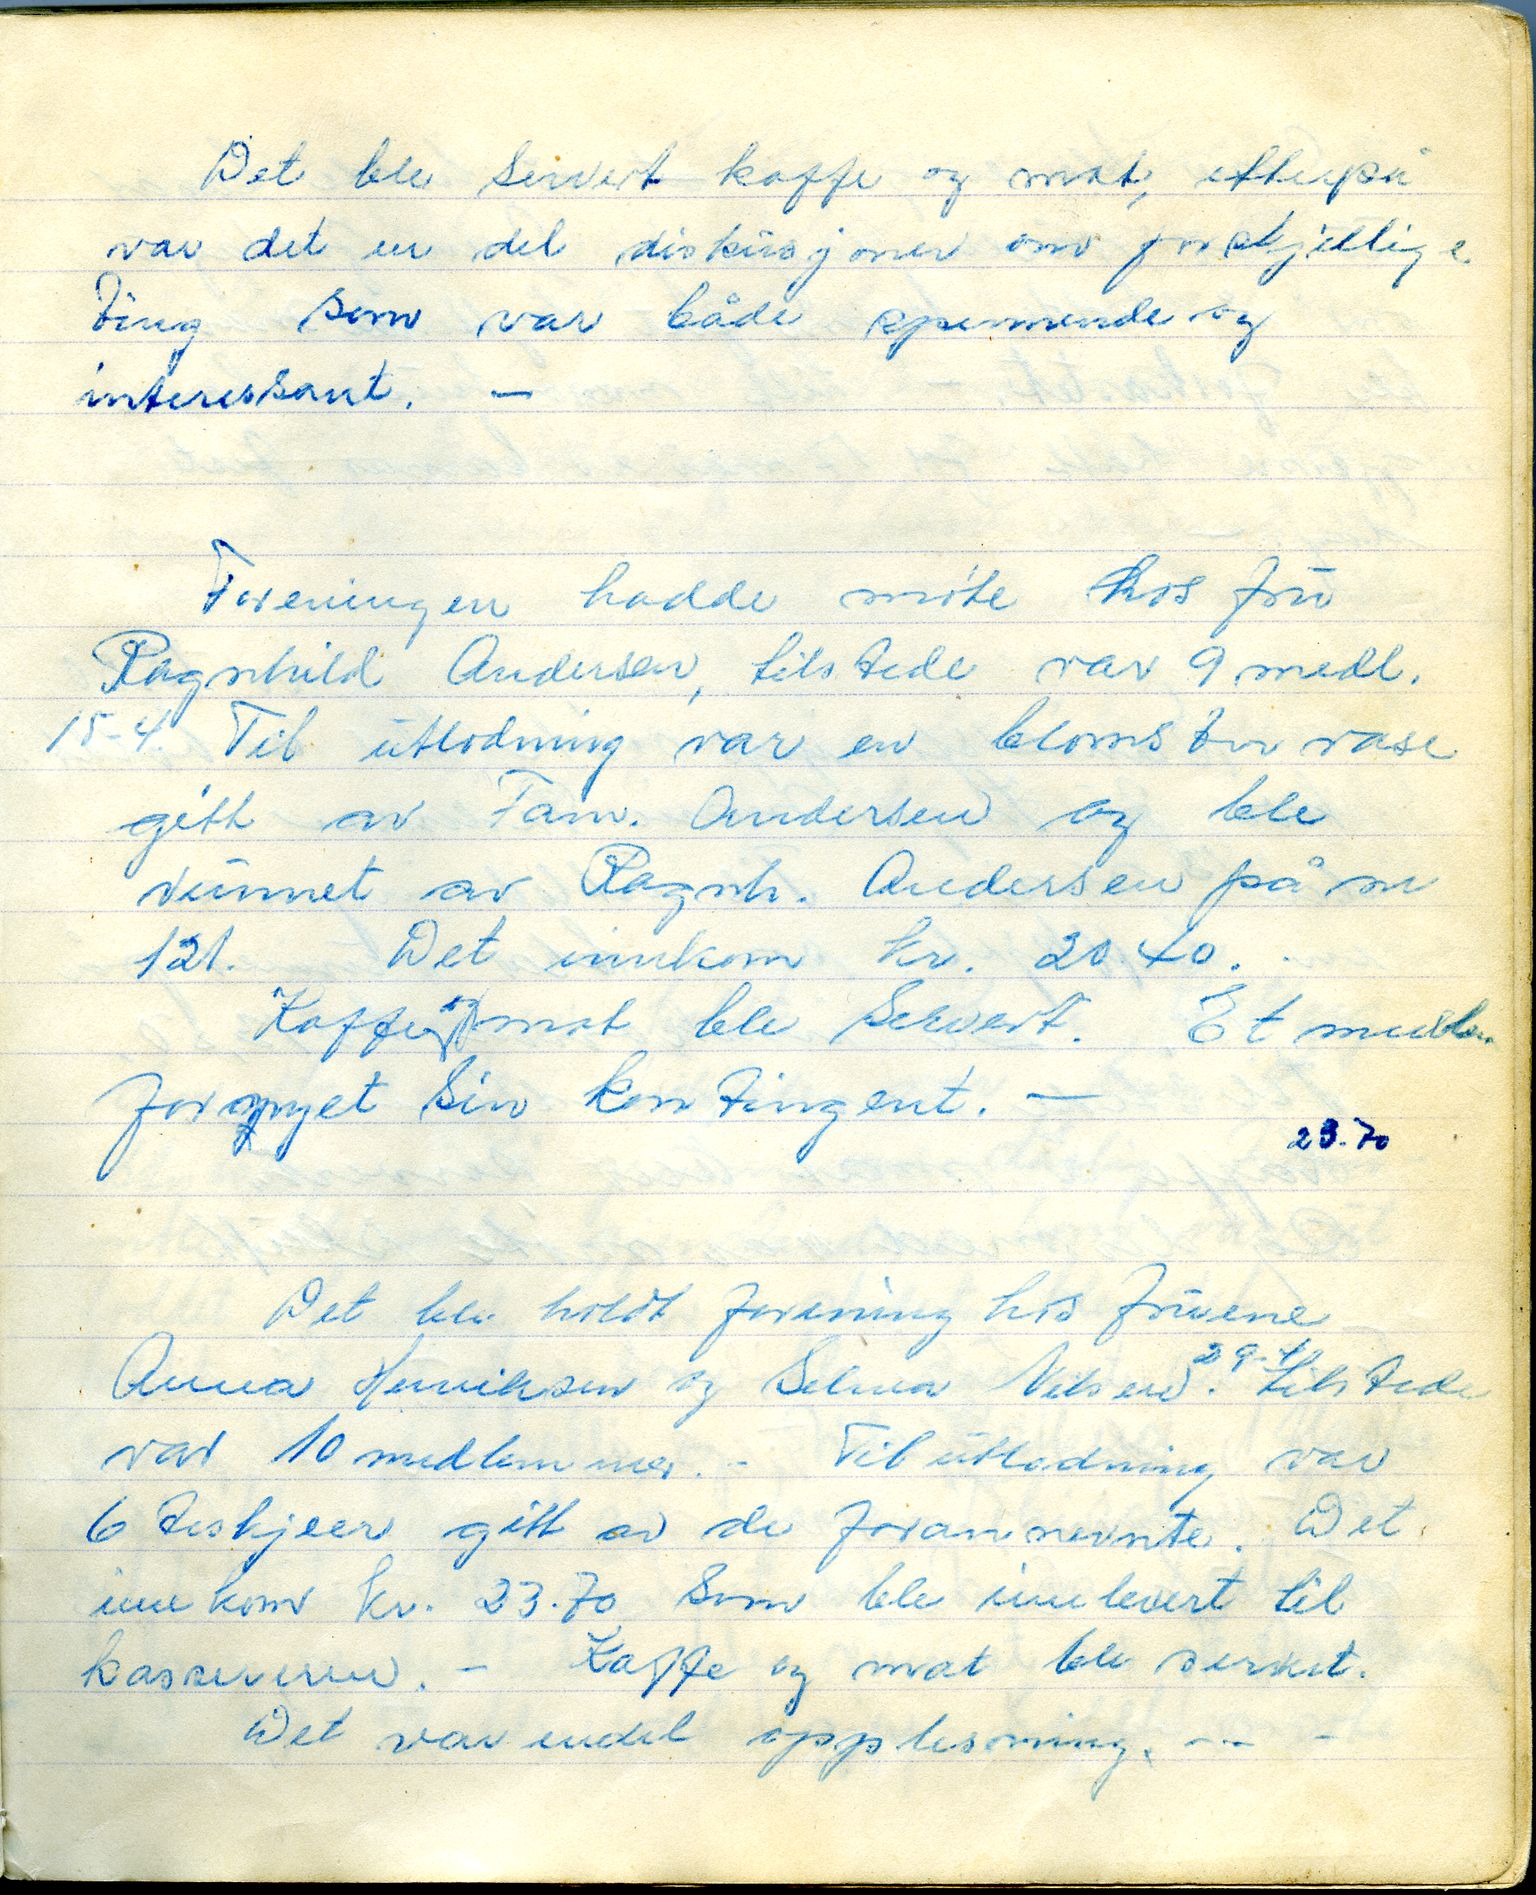 Det ble servert kaffe og mat, etterpå
var det en del diskusjoner om forskjellige
ting som var både spennende og
interessant. —
Foreningen hadde møte hos fru
Ragnhild Andersen, tilstede var 9 medl.
15-4. Til utlodning var en blomster vase
gitt av Fam. Andersen og ble
vunnet av Ragnh. Andersen på nr
121. Det innkom kr. 20.40.
Kaffe og mat ble servert. Et medlem
fornyet sin kontingent. —
23.70
Det ble holdt forening hos fruene
29-4.
Anna Henriksen og Selma Nilsen. tilstede
var 10 medlemmer. - Til utlodning var
6 teskjeer gitt av de forannevnte. Det
innkom kr. 23.70 som ble innlevert til
kassereren. - Kaffe og mat ble servert.
Det var endel opplesning. — -